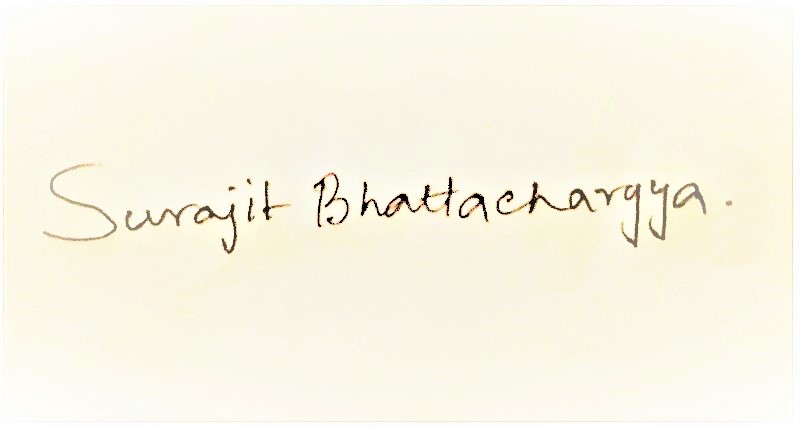 Surajit Bhattacharyya.